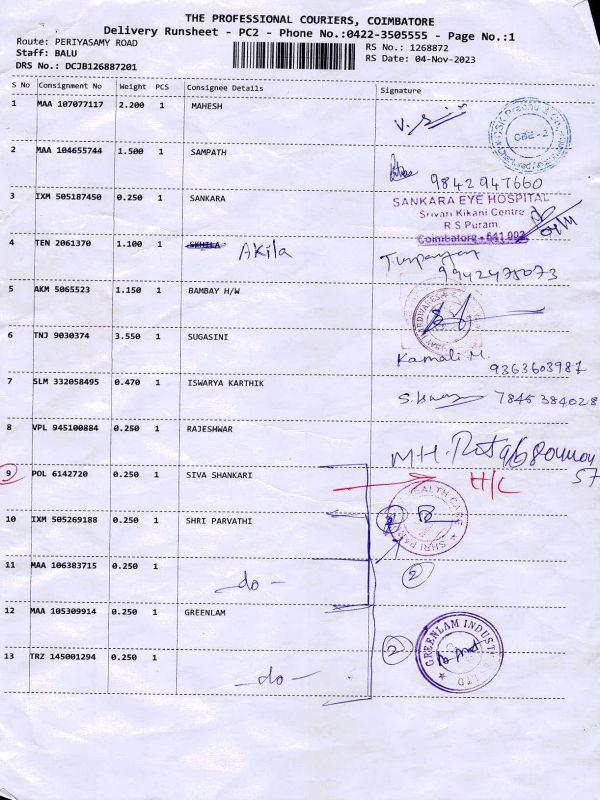 THE PROFESSIONAL COURIERS, COIMBATORE
Delivery Runsheet - PC2 - Phone No.:0422-3505555 - Page No.:1
Route: PERIYASAMY ROAD
RS No.: 1268872
Staff: BALU
RS Date: 04-Nov-2023
DRS No.: DCJB126887201
S No Consignment No Weight PCS Consignee Details Signature
1 MAA 107077117 2.200 1 MAHESH
CBE - 2
2 MAA 104655744 1.500 1 SAMPATH
9842947660
3 IXM 505187450 0.250 1 SANKARA
SANKARA EYE HOSPITAL
Srivari Kikani Centre
R S Puram,
Coimbatore - 641 002
4 TEN 2061370 1.100 1 SKHILA Akila
9942475073
5 AKM 5065523 1.150 1 BAMBAY H/W
6 TNJ 9030374 3.550 1 SUGASINI
Kamali M.
9363603987
7 SLM 332058495 0.470 1 ISWARYA KARTHIK
7845384028
8 VPL 945100884 0.250 1 RAJESHWAR
M.H.
57
9 POL 6142720 0.250 1 SIVA SHANKARI H/C
10 IXM 505269188 0.250 1 SHRI PARVATHI
2
11 MAA 106383715 0.250 1 -do-
2
12 MAA 105309914 0.250 1 GREENLAM
2 GREENLAM INDUSTRIES LTD
13 TRZ 145001294 0.250 1 -do-